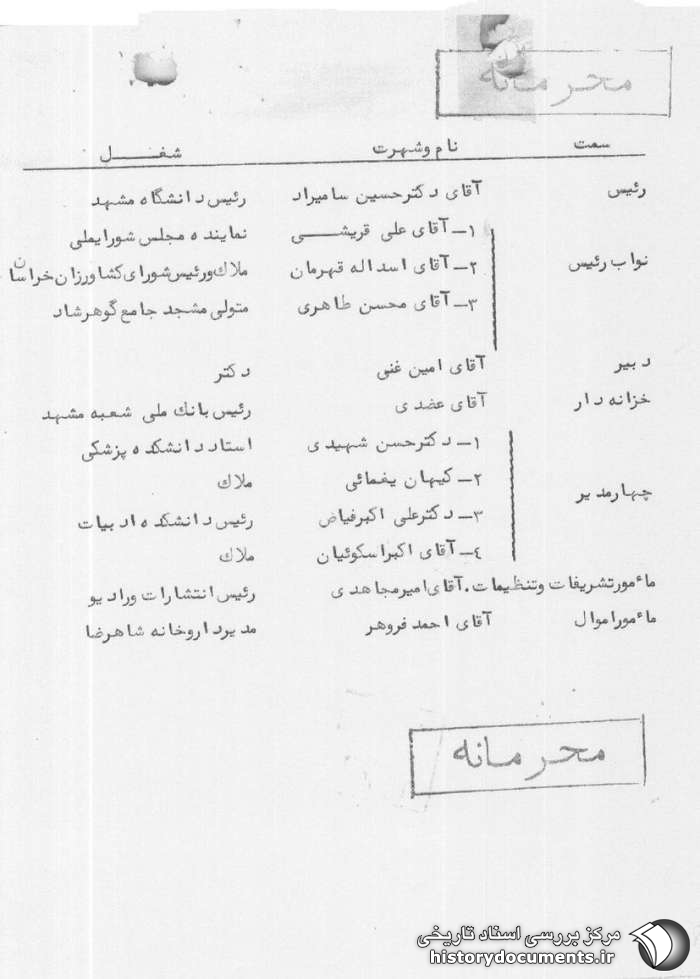 محرمانه
سمت نام وشهرت شغل
رئیس آقای دکترحسین سامیراد رئیس دانشگاه مشهد
۱ـ آقای علی قریشی نماینده مجلس شورایملی
نواب رئیس ۲ـ آقای اسداله قهرمان ملاك ورئیس شورای کشاورزان خراسان
۳ـ آقای محسن طاهری متولی مشجد جامع گوهرشاد
دبیر آقای امین غنی دکتر
خزانه دار آقای عضدی رئیس بانك ملی شعبه مشهد
۱ـ دکترحسن شهیدی استاد دانشکده پزشکی
۲ـ کیهان یغمائی ملاك
چهارمدیر ۳ـ دکترعلی اکبرفیاض رئیس دانشکده ادبیات
٤ـ آقای اکبراسکوئیان ملاك
مأمورتشریفات وتنظیمات. آقای امیرمجاهدی رئیس انتشارات ورادیو
مأموراموال آقای احمد فروهر مدیرداروخانه شاهرضا
محرمانه
مرکز بررسی اسناد تاریخی
historydocuments.ir